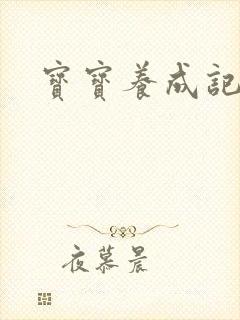 寶寶養成記
夜慕晨